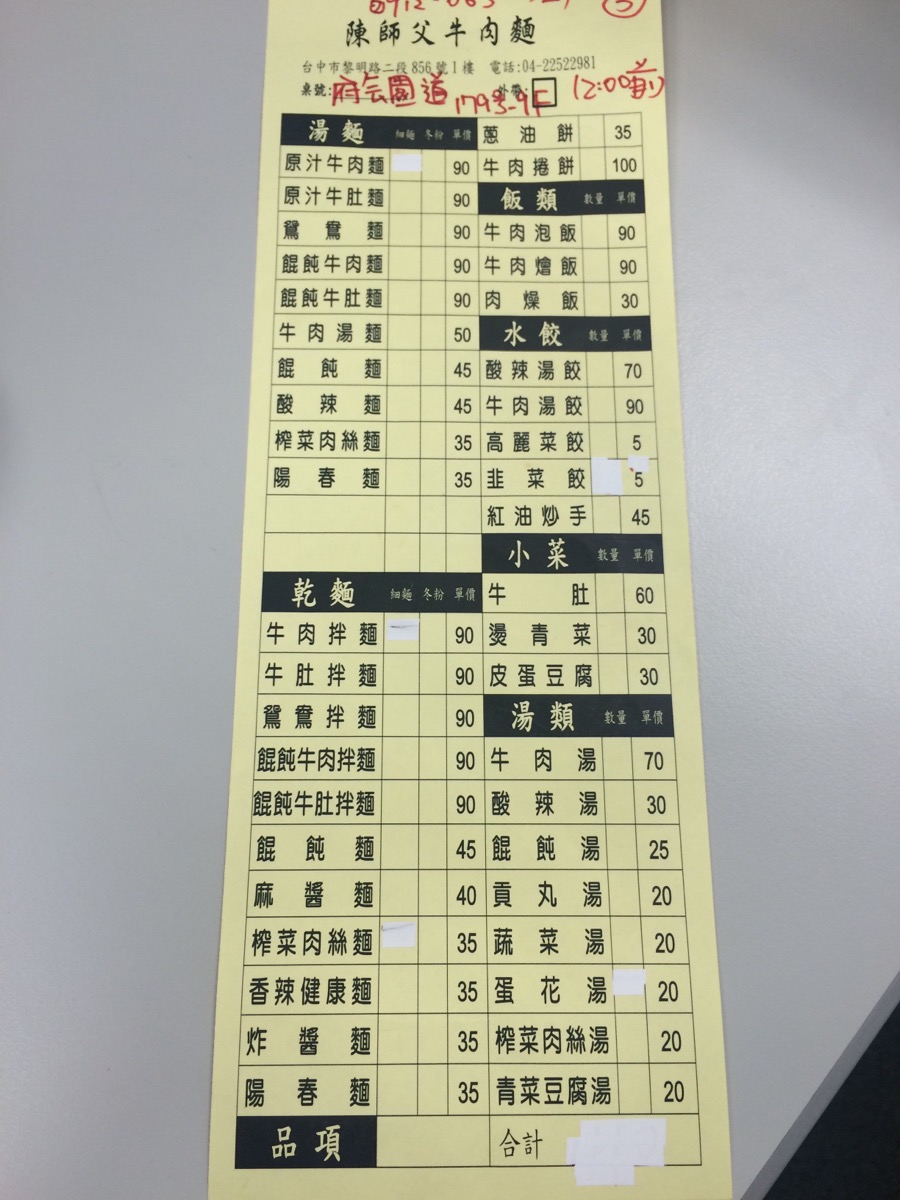 陳師父牛肉麵
台中市黎明路二段856號1樓 電話:04-22522981
桌號: 府會園道 179號-9F 外帶: 12:00前
湯麵 細麵 冬粉 單價
原汁牛肉麵 90
原汁牛肚麵 90
鴛鴦麵 90
餛飩牛肉麵 90
餛飩牛肚麵 90
牛肉湯麵 50
餛飩麵 45
酸辣麵 45
榨菜肉絲麵 35
陽春麵 35
乾麵 細麵 冬粉 單價
牛肉拌麵 90
牛肚拌麵 90
鴛鴦拌麵 90
餛飩牛肉拌麵 90
餛飩牛肚拌麵 90
餛飩麵 45
麻醬麵 40
榨菜肉絲麵 35
香辣健康麵 35
炸醬麵 35
陽春麵 35
品項
蔥油餅 35
牛肉捲餅 100
飯類 數量 單價
牛肉泡飯 90
牛肉燴飯 90
肉燥飯 30
水餃 數量 單價
酸辣湯餃 70
牛肉湯餃 90
高麗菜餃 5
韭菜餃 5
紅油炒手 45
小菜 數量 單價
牛肚 60
燙青菜 30
皮蛋豆腐 30
湯類 數量 單價
牛肉湯 70
酸辣湯 30
餛飩湯 25
貢丸湯 20
蔬菜湯 20
蛋花湯 20
榨菜肉絲湯 20
青菜豆腐湯 20
合計